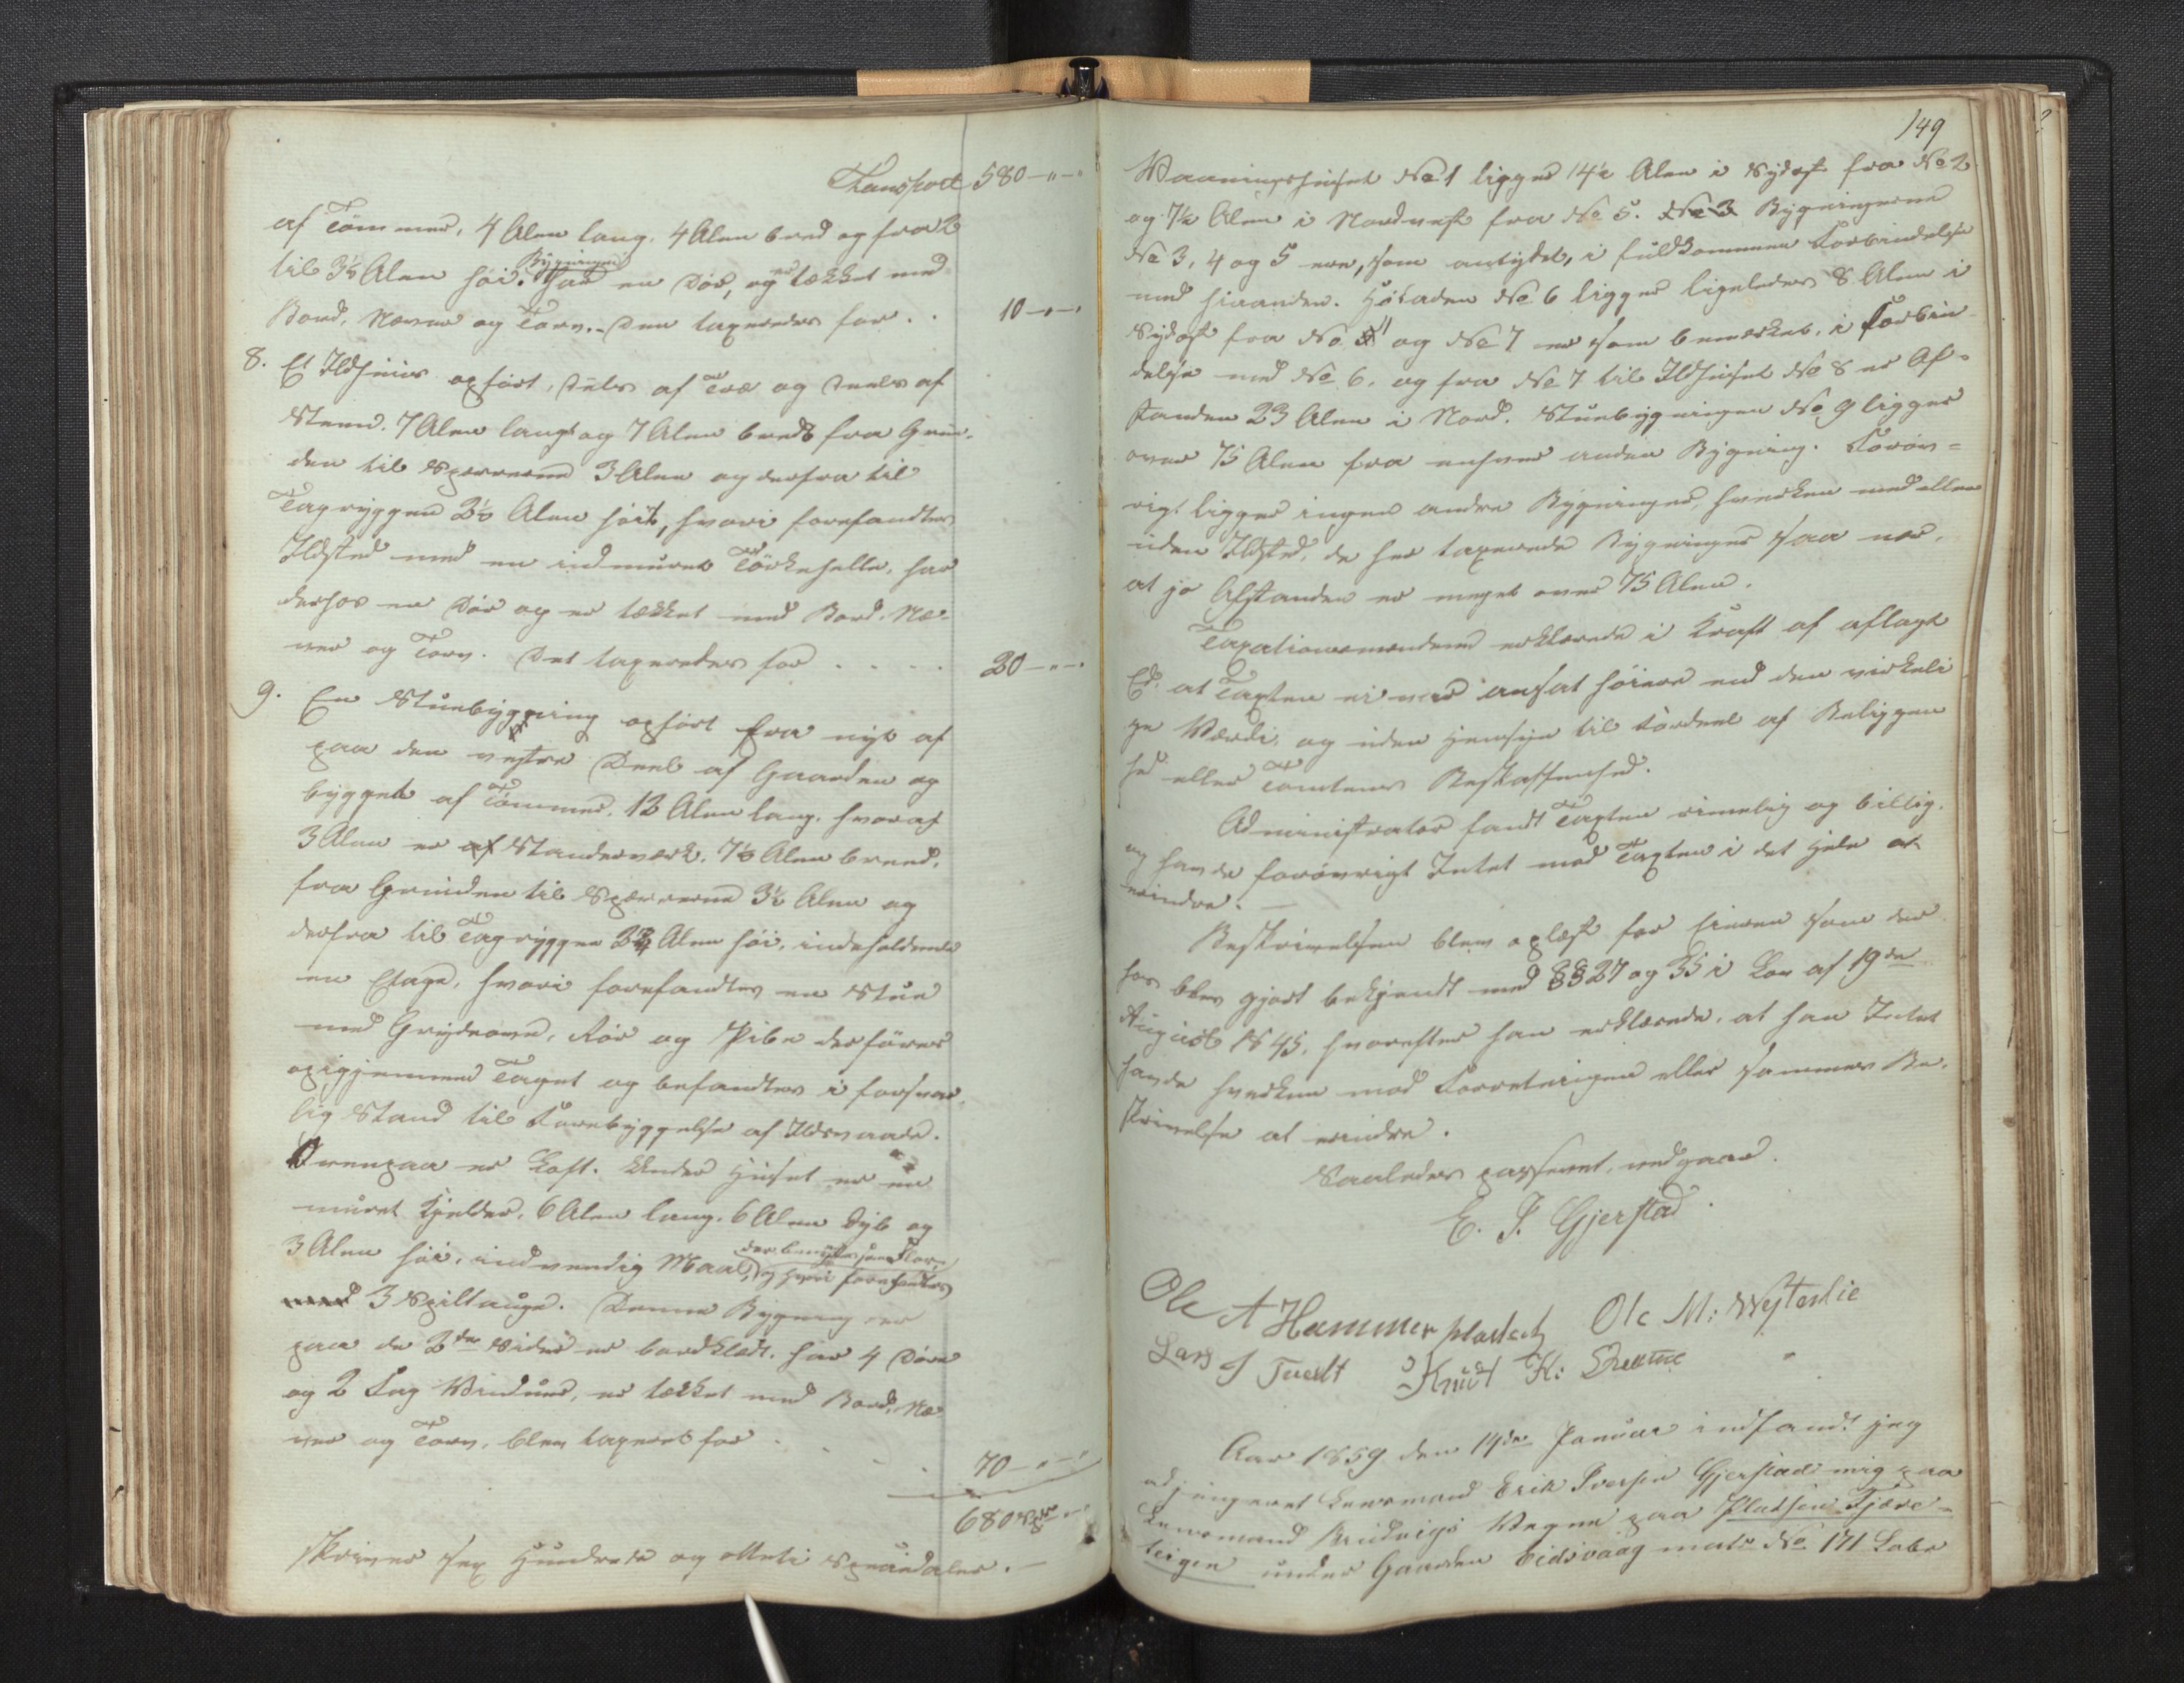 Transport 580 — " — "
af Tömmer, 4 Alen lang, 4 Alen bred og fra 2
til 3½ Alen höi. Bygningen har en Dör, og er tækket med
Bord, Næver og Torv. Den taxeredes for . . 10 — " — "
8. Et Ildhuus opfört, deels af Træ og deels af
Steen, 7 Alen langt og 7 Alen bredt fra Grun-
den til Sperrerne 3 Alen og derfra til
Tagryggen 2½ Alen höit, hvori forefandtes
Ildsted med en indmuret Törkehelle, har
derhos en Dör og er tækket med Bord, Næ-
ver og Torv. Det taxeredes for . . . . 20 — " — "
9. En Stuebygning opfört fra nyt af
paa den vestre Deel af Gaarden og
bygget af Tömmer, 12 Alen lang, hvoraf
3 Alen er af Standerværk, 7½ Alen breed,
fra Grunden til Sperrerne 3½ Alen og
derfra til Tagryggen 3¾ Alen höi, indeholdende
en Etage, hvori forefandtes en Stue
med Grydeovn, Rör og Pibe der förer
opigjennem Taget og befandtes i forsvar-
lig Stand til Forebyggelse af Ildsvaade.
Ovenpaa er Loft. Under Huset er en
muret Kjelder, 6 Alen lang, 6 Alen dyb og
3 Alen höi, indvendig Maal, der benyttes som Flor, og hvori forefandtes
3 Spiltauge. Denne Bygning er
paa de 2de Sider er bordklædt, har 4 Döre
og 2 Fag Vinduer, er tækket med Bord, Næ-
ver og Torv, blev taxeret for . . . 70 — " — "
680 Spd — "
skriver sex Hundrede og otteti Speciedaler. —
149
Vaaningshuset No 1 ligger 14½ Alen i Sydost fra No 2
og 7½ Alen i Nordvest fra No 5. No 3 Bygningerne
No 3, 4 og 5 ere, som antydet, i fuldkommen Forbindelse
med hinanden. Höladen No 6 ligger ligeledes 8 Alen i
Sydost fra No 4 og No 7 er som bemærket, i Forbin-
delse med No 6, og fra No 7 til Ildhuset No 8 er Af-
standen 23 Alen i Nord. Stuebygningen No 9 ligger
over 75 Alen fra enhver anden Bygning. Foröv-
rigt ligger ingen andre Bygninger, hverken med eller
uden Ildsted, de her taxerede Bygninger saa nær,
at jo Afstanden er meget over 75 Alen.
Taxationsmændene erklærede i Kraft af aflagt
Ed, at Taxten ei var ansat höiere end den virkeli-
ge Værdi, og uden Hensyn til Fordeel af Beliggen-
hed eller Tomtens Beskaffenhed.
Administrator fandt Taxten rimelig og billig,
og havde forövrigt Intet mod Taxten i det Hele at
erindre. —
Beskrivelsen blev oplæst for Eieren som der-
hos blev gjort bekjendt med §§ 27 og 35 i Lov af 19de
August 1845, hvorefter han erklærede, at han Intet
havde hverken mod Forretningen eller sammes Be-
skrivelse at erindre.
Saaledes passeret, vedgaar.
E. I. Gjerstad.
Ole A Hammer Ole M: Westerlie
Lars J Tvedt Knud K:
Aar 1859 den 14de Januar indfandt jeg
adjungeret Lensmand Erik Iversen Gjerstad mig paa
Lensmand Vegne paa Pladsen Fjære-
teigen under Gaarden Eidsvaag matr No 171 Labe